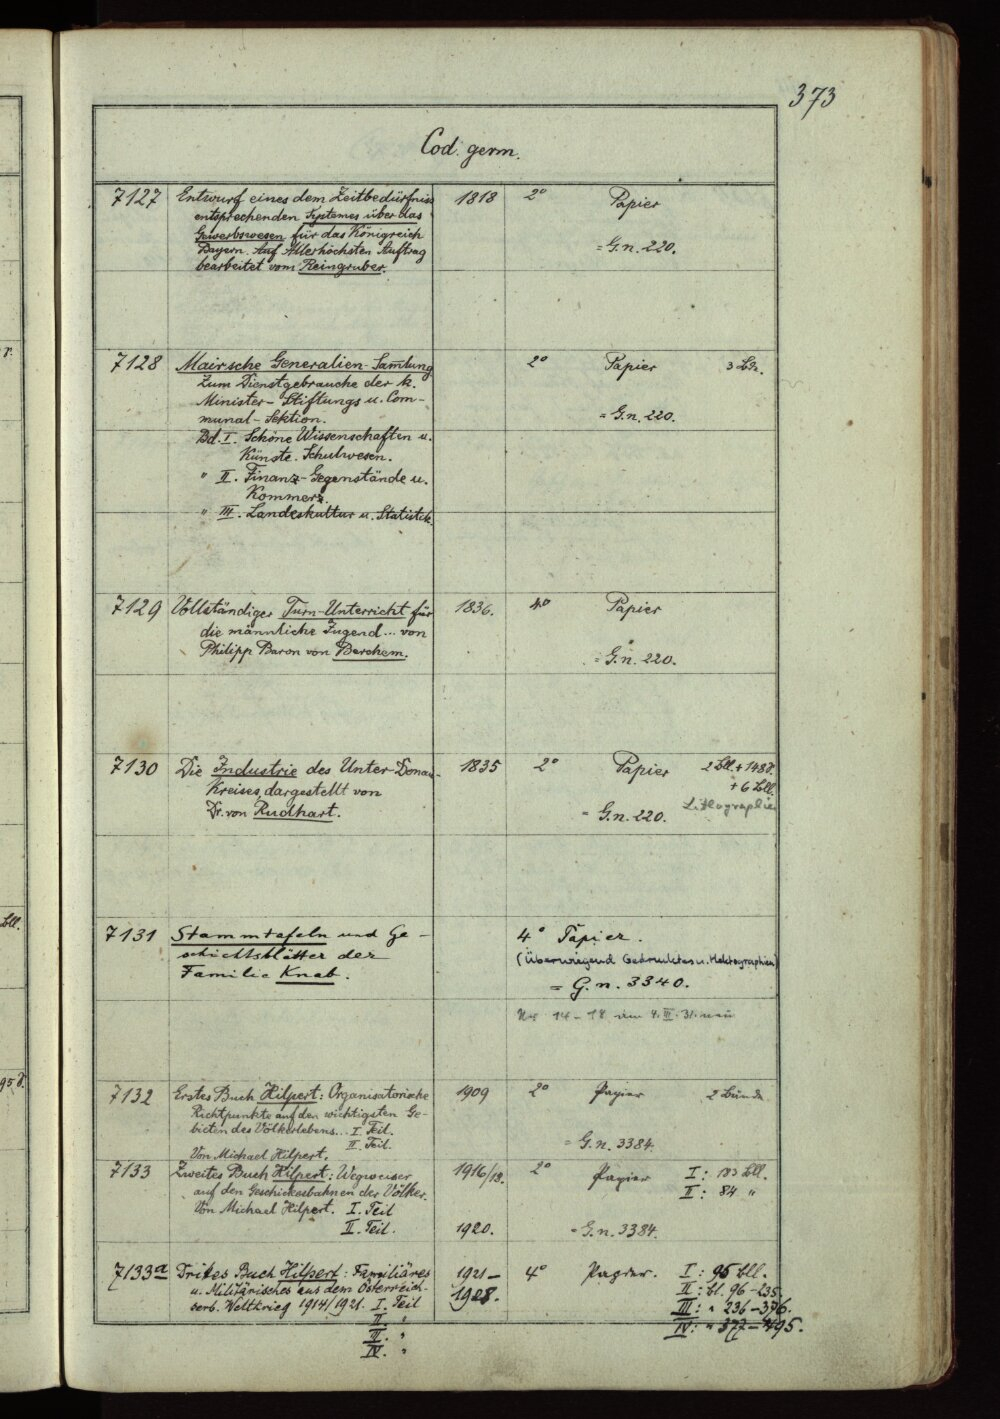 373
Cod. germ.
7127 Entwurf eines dem Zeitbedürfniss 1818 2° Papier
entsprechenden Systemes über das
Gewerbswesen für das Königreich = G.n. 220.
Bayern. Auf Allerhöchsten Auftrag
bearbeitet vom Reingruber.
7128 Mairsche Generalien-Samlung 2° Papier 3 Bde.
Zum Dienstgebrauche der k.
Minister-Stiftungs u. Com-
munal-Sektion. = G.n. 220.
Bd. I. Schöne Wissenschaften u.
Künste. Schulwesen.
" II. Finanz-Gegenstände u.
Kommerz.
" III. Landeskultur u. Statistik
7129 Vollständiger Turn-Unterricht für 1836. 4° Papier
die männliche Jugend... von
Philipp Baron von Berchem. = G.n. 220.
7130 Die Industrie des Unter-Donau- 1835 2° Papier 2 Bll. + 148 S.
Kreises, dargestellt von + 6 Bll.
Dr. von Rudhart. = G.n. 220. Lithographie
7131 Stammtafeln und Ge- 4° Papier.
schichtsblätter der (Überwiegend Gedrucktes u. Hektographien)
Familie Knab. = G.n. 3340.
Nr 14-18 am 4. III. 31. neu
7132 Erstes Buch Hilpert: Organisatorische 1909 2° Papier 2 Bände
Richtpunkte auf den wichtigsten Ge-
bieten des Völkerlebens... I. Teil.
II. Teil. = G.n. 3384.
Von Michael Hilpert.
7133 Zweites Buch Hilpert: Wegweiser 1916/19. 2° Papier I: 103 Bll.
auf den Geschickesbahnen der Völker. II: 84 "
Von Michael Hilpert. I. Teil
II. Teil. 1920. = G.n. 3384.
7133a Drittes Buch Hilpert: Familiäres 1921- 4° Papier. I: 95 Bll.
u. Militärisches aus dem Österreich- 1928. II: Bl. 96-235.
serb. Weltkrieg 1914/1921. I. Teil III: " 236-376.
II. " IV: " 377-495.
III. "
IV. "
r.
Bll.
95 S.